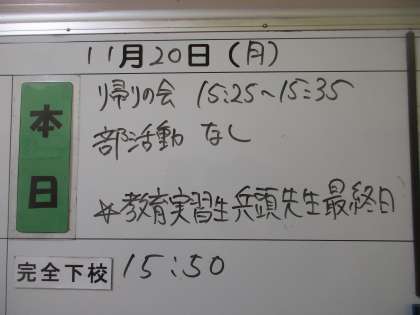 11月20日(月)
本日
帰りの会 15:25~15:35
部活動 なし
☆教育実習生兵頭先生最終日
完全下校 15:50